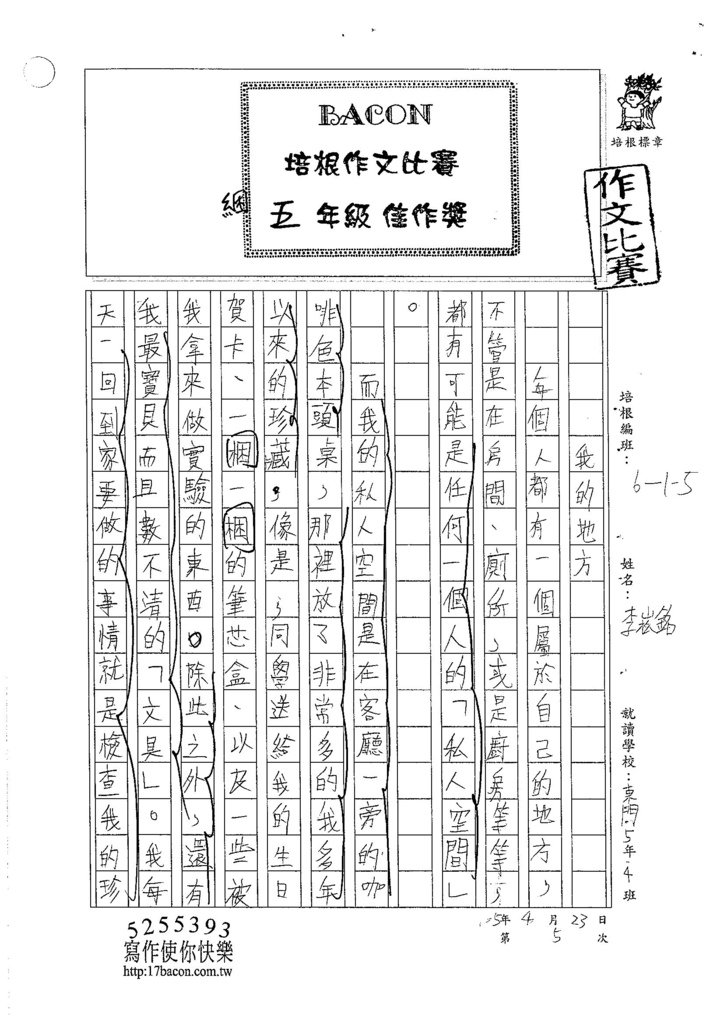 BACON
培根作文比賽
五 年級 佳作獎
綑
培根標章
作文比賽
培根編班：6-1-5
姓名：李 銘
就讀學校：東明 5年4班
我的地方
每個人都有一個屬於自己的地方，
不管是在房間、廁所，或是廚房等等，
都有可能是任何一個人的「私人空間」
。
而我的私人空間是在客廳一旁的咖
啡色本頭桌，那裡放了非常多的我多年
以來的珍藏，像是，同學送給我的生日
賀卡、一梱一梱的筆芯盒、以及一些被
我拿來做實驗的東西。除此之外，還有
我最寶貝而且數不清的「文具」。我每
天一回到家要做的事情就是檢查我的珍
5年 4月 23日
第 5 次
5255393
寫作使你快樂
http:17bacon.com.tw